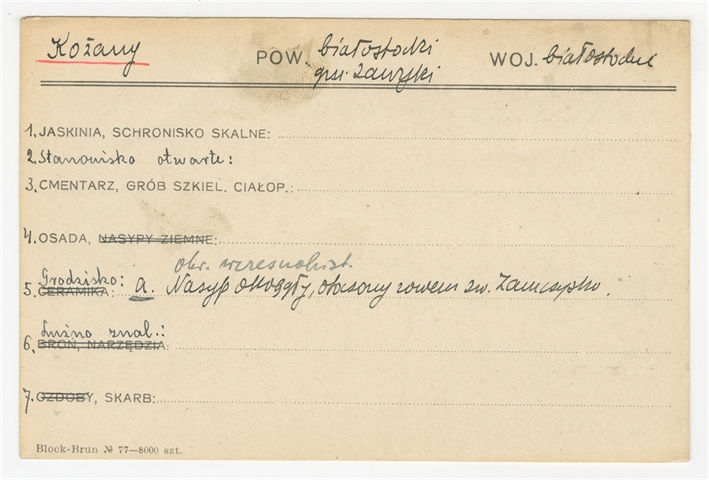 Kożany POW. białostocki WOJ. białostockie
gm. Zawyki
1. JASKINIA, SCHRONISKO SKALNE:
2. Stanowisko otwarte:
3. CMENTARZ, GRÓB SZKIEL. CIAŁOP.:
4. OSADA, NASYPY ZIEMNE:
okr. wczesnohist.
Grodzisko:
5. CERAMIKA: a. Nasyp okrągły, otoczony rowem zw.
Luźno znal.:
6. BROŃ, NARZĘDZIA:
7. OZDOBY, SKARB:
Block-Brun № 77—8000 szt.